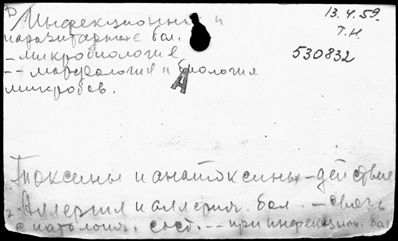 Инфекционные и
паразитарные бол.
– микробиология
-- морфология и биология
микробов.
13.4.59.
Т.Н.
530832
А
Токсины и анатоксины – действие
2. Аллергия и аллергич. бол. – связь
с патолог. сост. -- при инфекцион. бол